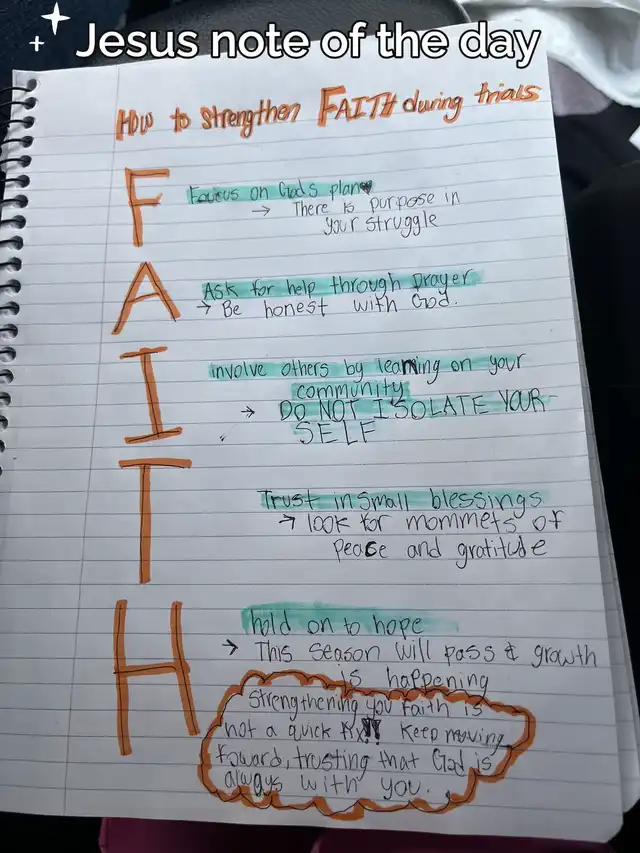 Jesus note of the day
How to strengthen FAITH during trials
F
Foucus on Gods plan
→ There is purpose in
your struggle
A
Ask for help through prayer
→ Be honest with God.
I
involve others by leaning on your
community
→ DO NOT ISOLATE YOUR
SELF
T
Trust in small blessings
→ look for mommets of
peace and gratitude
H
hold on to hope
→ This season will pass & growth
is happening
Strengthening you faith is
not a quick fix!! Keep moving
foward, trusting that God is
always with you.